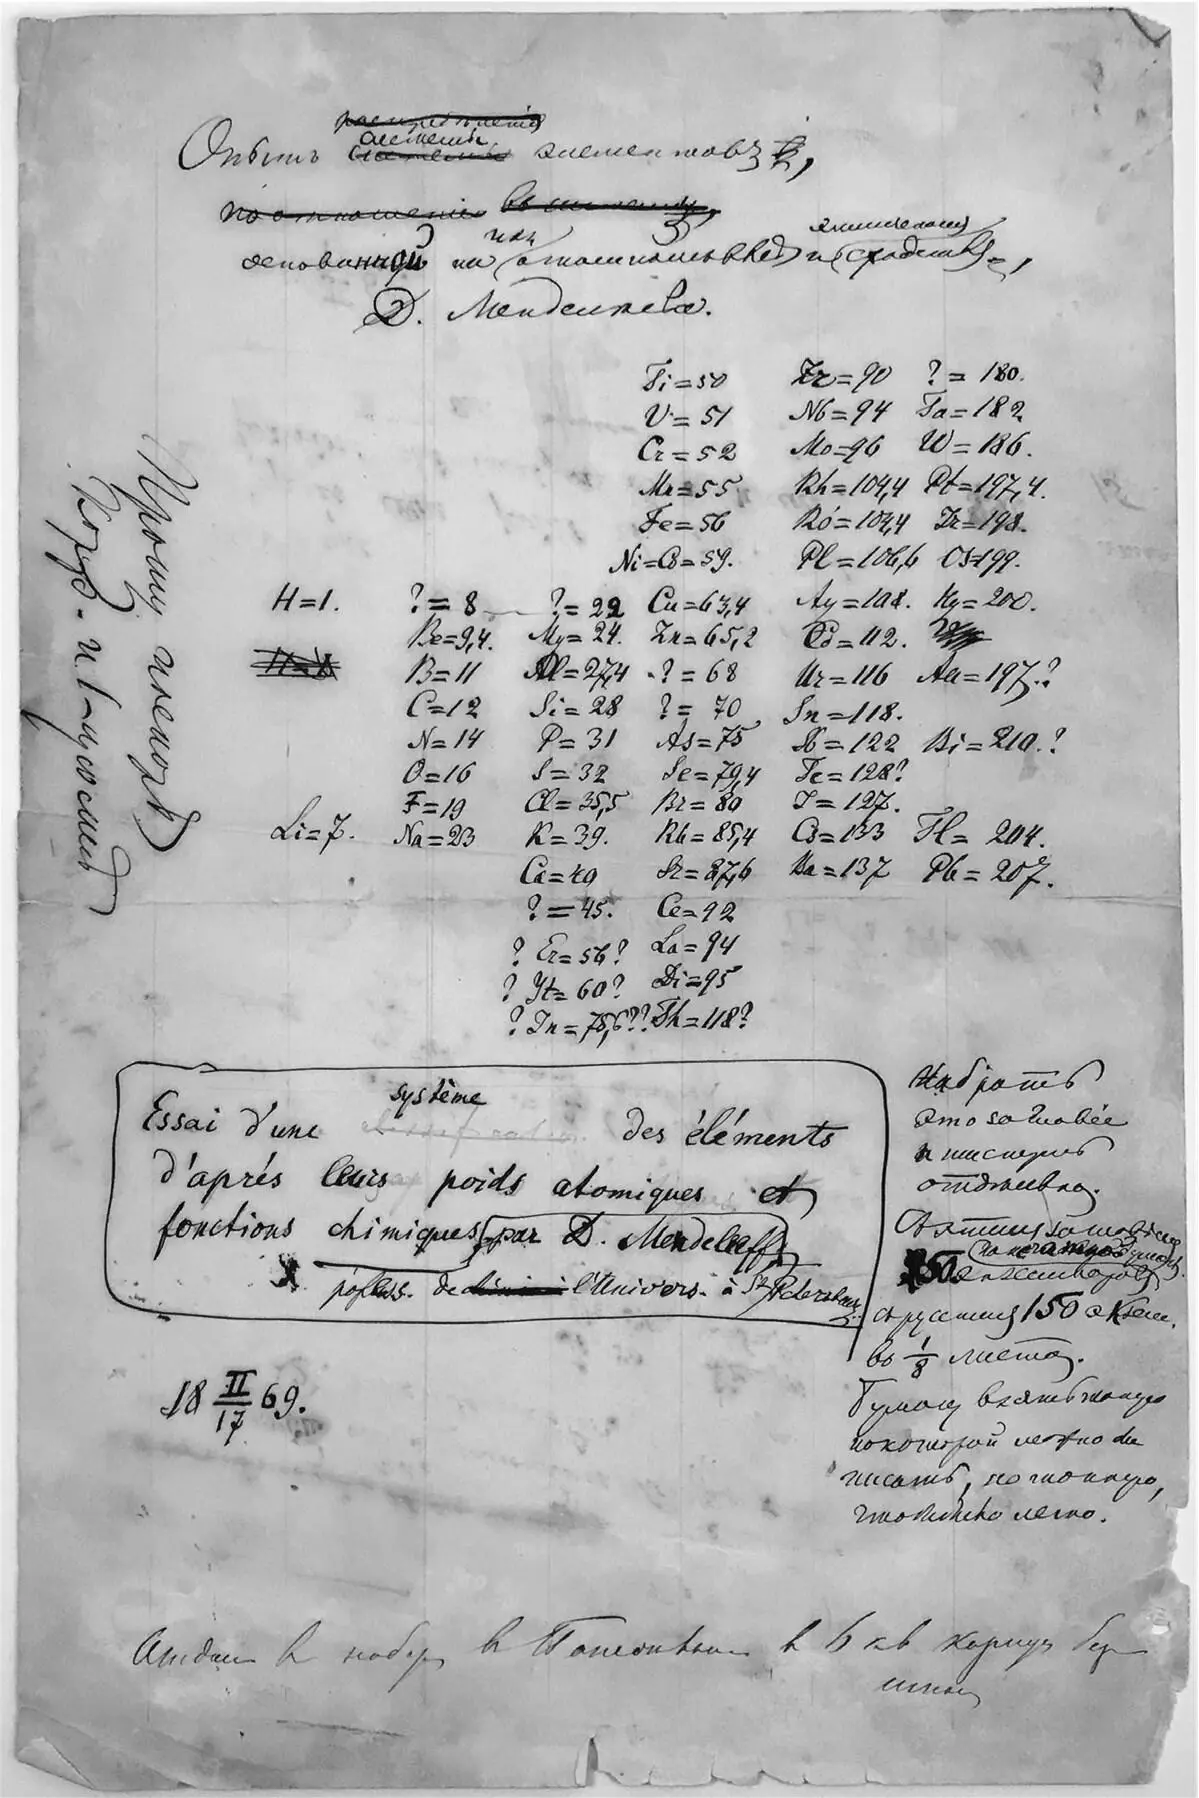 Опытъ системы элементовъ,
основанной на атомномъ вѣсѣ и химическомъ сходствѣ,
Д. Менделѣева.
Ti=50 Zr=90 ?=180.
V=51 Nb=94 Ta=182
Cr=52 Mo=96 W=186.
Mn=55 Rh=104,4 Pt=197,4.
Fe=56 Ro=104,4 Ir=198.
Ni=Co=59. Pl=106,6 Os=199.
H=1. ?=8 ?=22 Cu=63,4 Ag=108. Hg=200.
Be=9,4. Mg=24. Zn=65,2 Cd=112.
B=11 Al=27,4 ?=68 Ur=116 Au=197.?
C=12 Si=28 ?=70 Sn=118.
N=14 P=31 As=75 Sb=122 Bi=210.?
O=16 S=32 Se=79,4 Te=128?
F=19 Cl=35,5 Br=80 J=127.
Li=7. Na=23 K=39. Rb=85,4 Cs=133 Tl=204.
Ca=40 Sr=87,6 Ba=137 Pb=207.
?=45. Ce=92
? Er=56? La=94
? Yt=60? Di=95
? In=75,6?? Th=118?
Essai d'une système des éléments
d'après leurs poids atomiques et
fonctions chimiques par D. Mendeleeff
profess. de l'Univers. à St. Petersbourg
18 II/17 69.
Набрать
это заглавіе
отдѣльно.
150
съ русскимъ 150 экзем.
въ 1/8 листа.
Бумагу взять
писать,